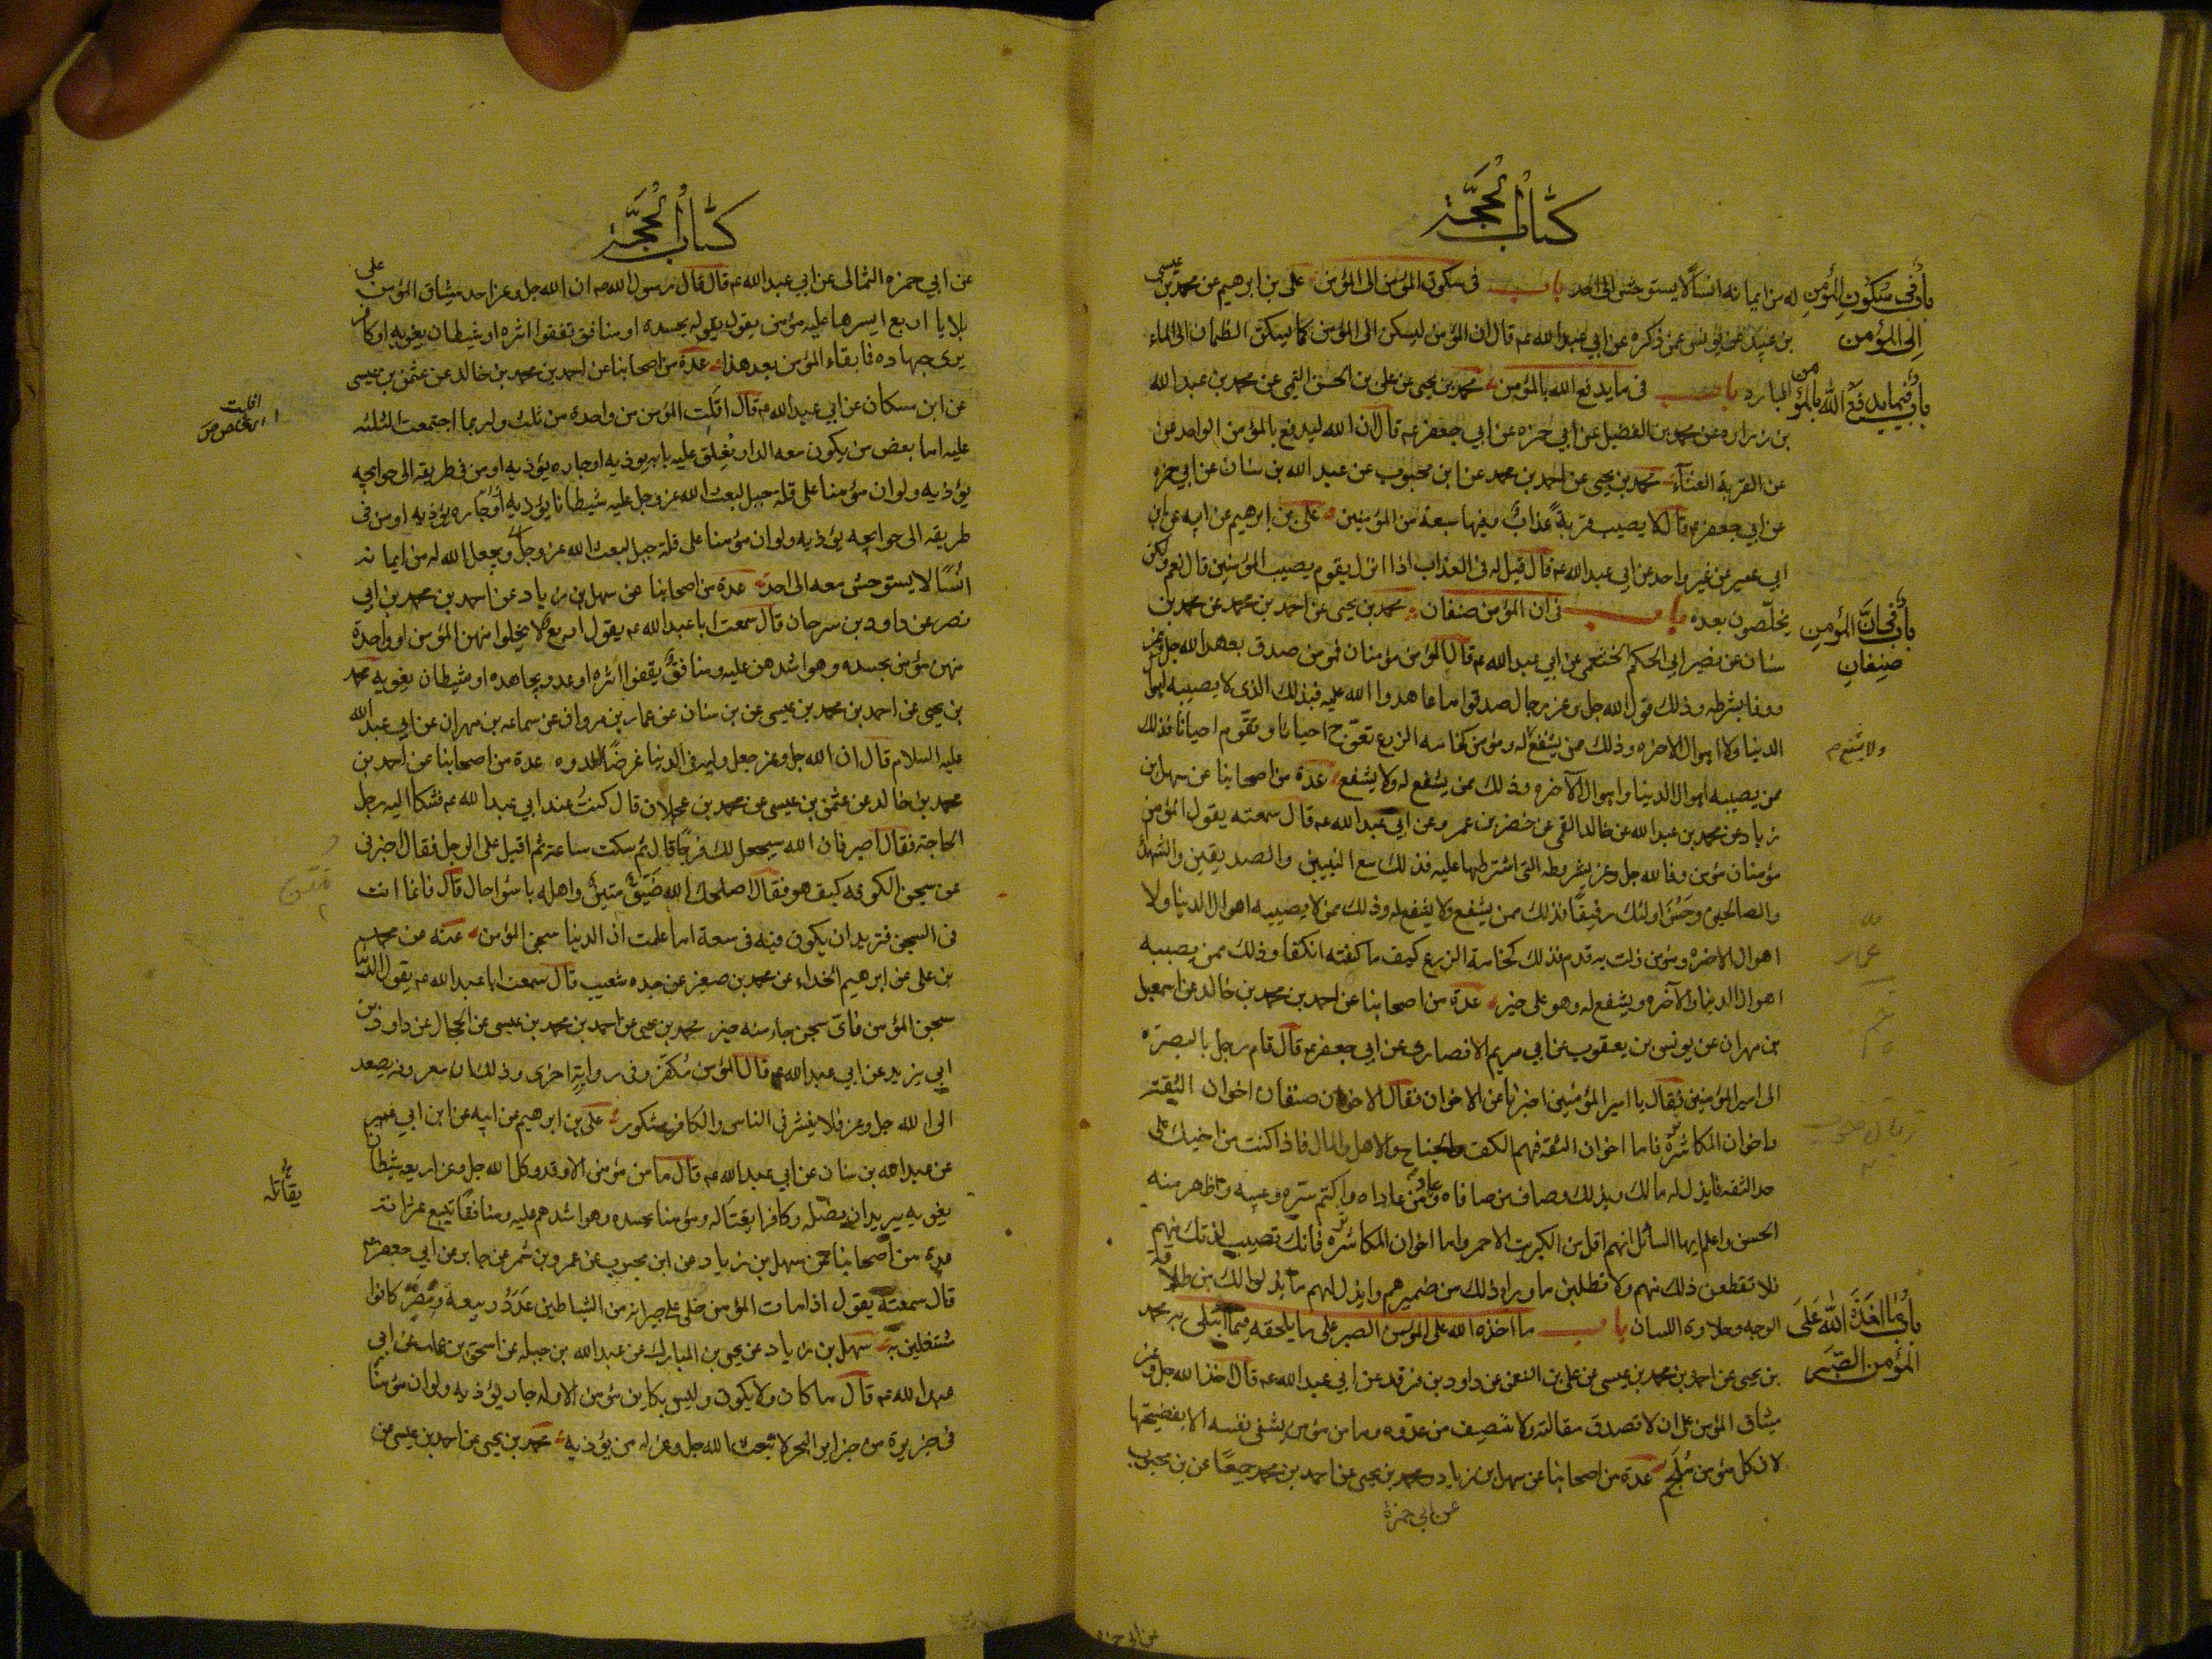 كتاب الحجة
له من ايمانه انساً لا يستوحش الى احد باب في سكون المؤمن الى المؤمن علي بن ابرهيم عن محمد بن عيسى
بن عبيد عن يونس عمن ذكره عن ابي عبد الله عم قال ان المؤمن ليسكن الى المؤمن كما يسكن الظمآن الى الماء
البارد باب في ما يدفع الله بالمؤمن محمد بن يحيى عن علي بن الحسن التيمي عن محمد بن عبد الله
بن زراره عن محمد بن الفضيل عن ابي حمزه عن ابي جعفر عم قال ان الله ليدفع بالمؤمن الواحد عن
عن القرية الفناء محمد بن يحيى عن احمد بن محمد عن ابن محبوب عن عبد الله بن سنان عن ابي حمزه
عن ابي جعفر عم قال لا يصيب قرية عذاب وفيها سبعة من المؤمنين علي بن ابرهيم عن ابيه عن ابن
ابي عمير عن غير واحد عن ابي عبد الله عم قال قيل له في العذاب اذا انزل بقوم يصيب المؤمنين قال نعم ولكن
يخلصون بعده باب في ان المؤمن صنفان محمد بن يحيى عن احمد بن محمد عن محمد بن
سنان عن نصير ابي الحكم الخثعمي عن ابي عبد الله عم قال المؤمن مؤمنان فمؤمن صدق بعهد الله جل وعز
ووفا بشرطه وذلك قول الله جل وعز رجال صدقوا ما عاهدوا الله عليه فذلك الذي لا يصيبه اهوال
الدنيا ولا اهوال الاخره وذلك ممن يشفع له ومؤمن كخامه الزرع تعوج احيانا وتقوم احيانا فذلك
ممن يصيبه اهوال الدنيا واهوال الآخره وذلك ممن يشفع له ولا يشفع عدة من اصحابنا عن سهل بن
زياد عن محمد بن عبد الله عن خالد القمي عن خضر بن عمرو عن ابي عبد الله عم قال سمعته يقول المؤمن
مؤمنان مؤمن وفا لله جل وعز بشروطه التي اشترطها عليه فذلك مع النبيين والصديقين والشهداء
والصالحين وحسن اولئك رفيقا فذلك ممن يشفع ولا يشفع له وذلك ممن لا يصيبه اهوال الدنيا ولا
اهوال الاخره ومؤمن زلت به قدم فذلك كخامة الزرع كيف ما كفته انكفا وذلك ممن يصيبه
اهوال الدنيا والآخره ويشفع له وهو على خير عدة من اصحابنا عن احمد بن محمد بن خالد عن اسمعيل
بن مهران عن يونس بن يعقوب عن ابي مريم الانصاري عن ابي جعفر عم قال قام رجل بالبصره
الى امير المؤمنين فقال يا امير المؤمنين اخبرنا عن الاخوان فقال الاخوان صنفان اخوان الثقة
واخوان المكاشره فاما اخوان الثقة فهم الكف والجناح والاهل والمال فاذا كنت من اخيك على
حد الثقه فابذل له مالك وبدنك وصاف من صافاه وعاد من عاداه واكتم سره وعيبه واظهر منه
الحسن واعلم ايها السائل انهم اقل من الكبريت الاحمر واما اخوان المكاشره فانك تصيب لذتك منهم
فلا تقطعن ذلك منهم ولا تطلبن ما وراء ذلك من ضميرهم وابذل لهم ما بذلوا لك من طلاقه
الوجه وحلاوة اللسان باب ما اخذه الله على المؤمن الصبر على ما يلحقه فيما ابتلي به محمد
بن يحيى عن احمد بن محمد بن عيسى عن علي بن النعمن عن داود بن فرقد عن ابي عبد الله عم قال اخذ الله جل وعز
ميثاق المؤمن على ان لا تصدق مقالته ولا تنتصف من عدوه وما من مؤمن يشفي نفسه الا بفضيحتها
لان كل مؤمن ملجم عدة من اصحابنا عن سهل بن زياد ومحمد بن يحيى عن احمد بن محمد جميعا عن بن محبوب
عن ابي حمزة
باب في سكون المؤمن
إلى المؤمن
باب فيما يدفع الله بالمؤمن
باب في ان المؤمن
صنفان
ولا يشفع
باب ما اخذه الله على
المؤمن الصبر
كتاب الحجة
عن ابي حمزه الثمالي عن ابي عبد الله عم قال قال رسول الله ص ان الله جل وعز اخذ ميثاق المؤمن على
بلايا اربع ايسرها عليه مؤمن يقول بقوله يحسده او منافق تفقوا اثره او شيطان يغويه او كافر
يرى جهاده فما بقاء المؤمن بعد هذا عدة من اصحابنا عن احمد بن محمد بن خالد عن عثمن بن عيسى
عن ابن مسكان عن ابي عبد الله عم قال ما افلت المؤمن من واحدة من ثلث ولربما اجتمعت الثلثه
عليه اما بعض من يكون معه الدار يغلق عليه بابه يوذيه او جاره يؤذيه او من في طريقه الى حوايجه
يؤذيه ولو ان مؤمنا على قلة جبل لبعث الله عز وجل عليه شيطانا يؤذيه او جاره يؤذيه او من في
طريقه الى حوايجه يؤذيه ولو ان مؤمنا على قلة جبل لبعث الله عز وجل ويجعل الله له من ايمانه
انسا لا يستوحش معه الى احد عدة من اصحابنا عن سهل بن زياد عن احمد بن محمد بن ابي
نصر عن داود بن سرحان قال سمعت ابا عبد الله عم يقول اربع لا يخلوا منهن المؤمن او واحدة
منهن مؤمن يحسده وهو اشدهن عليه ومنافق يقفوا اثره او عدو يجاهده او شيطان يغويه محمد
بن يحيى عن احمد بن محمد بن عيسى عن بن سنان عن عمار بن مروان عن سماعه بن مهران عن ابي عبد الله
عليه السلام قال ان الله جل وعز جعل وليه في الدنيا غرضا لعدوه عدة من اصحابنا عن احمد بن
محمد بن خالد عن عثمن بن عيسى عن محمد بن عجلان قال كنت عند ابي عبد الله عم فشكا اليه رجل
الحاجة فقال اصبر فان الله سيجعل لك فرجا قال ثم سكت ساعة ثم اقبل على الرجل فقال اخبرني
عن سجن الكوفه كيف هو فقال اصلحك الله ضيق منتن واهله باسوا حال قال فانما انت
في السجن فتريد ان يكون فيه في سعة اما علمت ان الدنيا سجن المؤمن عنه عن محمد
بن علي عن ابرهيم الحذاء عن محمد بن صغير عن جده شعيب قال سمعت ابا عبد الله عم يقول الدنيا
سجن المؤمن فاي سجن جاء منه خير محمد بن يحيى عن احمد بن محمد بن عيسى عن الحجال عن داود بن
ابي يزيد عن ابي عبد الله عم قال المؤمن مكفر وفي رواية اخرى وذلك ان معروفه يصعد
الى الله جل وعز فلا ينشر في الناس والكافر مشكور علي بن ابرهيم عن ابيه عن ابن ابي عمير
عن عبد الله بن سنان عن ابي عبد الله عم قال ما من مؤمن الا وقد وكل الله جل وعز اربعه شيطان
يغويه يريد ان يضله وكافرا يقتاله ومؤمنا يحسده وهو اشدهم عليه ومنافقا يتبع عثراته
عدة من اصحابنا عن سهل بن زياد عن ابن محبوب عن عمرو بن شمر عن جابر عن ابي جعفر عم
قال سمعته يقول اذا مات المؤمن خلي على جيرانه من الشياطين عدد ربيعة ومضر كانوا
مشتغلين به سهل بن زياد عن يحيى بن المبارك عن عبد الله بن جبله عن اسحق بن عمار عن ابي
عبد الله عم قال ما كان ولا يكون وليس بكاين مؤمن الا وله جار يؤذيه ولو ان مؤمنا
في جزيرة من جزاير البحر لابتعث الله جل وعز له من يؤذيه محمد بن يحيى عن احمد بن عيسى عن
افلت
يقاتله